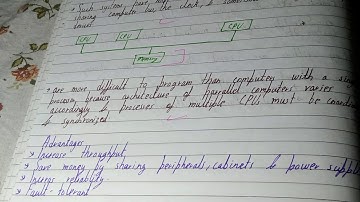 * Such systems, have
sharing computer bus, the clock, & sometimes
CPU CPU CPU
memory
* are more difficult to program than computers with a
processor, because architecture of parallel computers varies
accordingly & processes of multiple CPUs must be
& synchronized
Advantages
* Increase throughput,
* Save money by sharing peripherals, cabinets & power
* Increas reliability
* Fault-tolerant